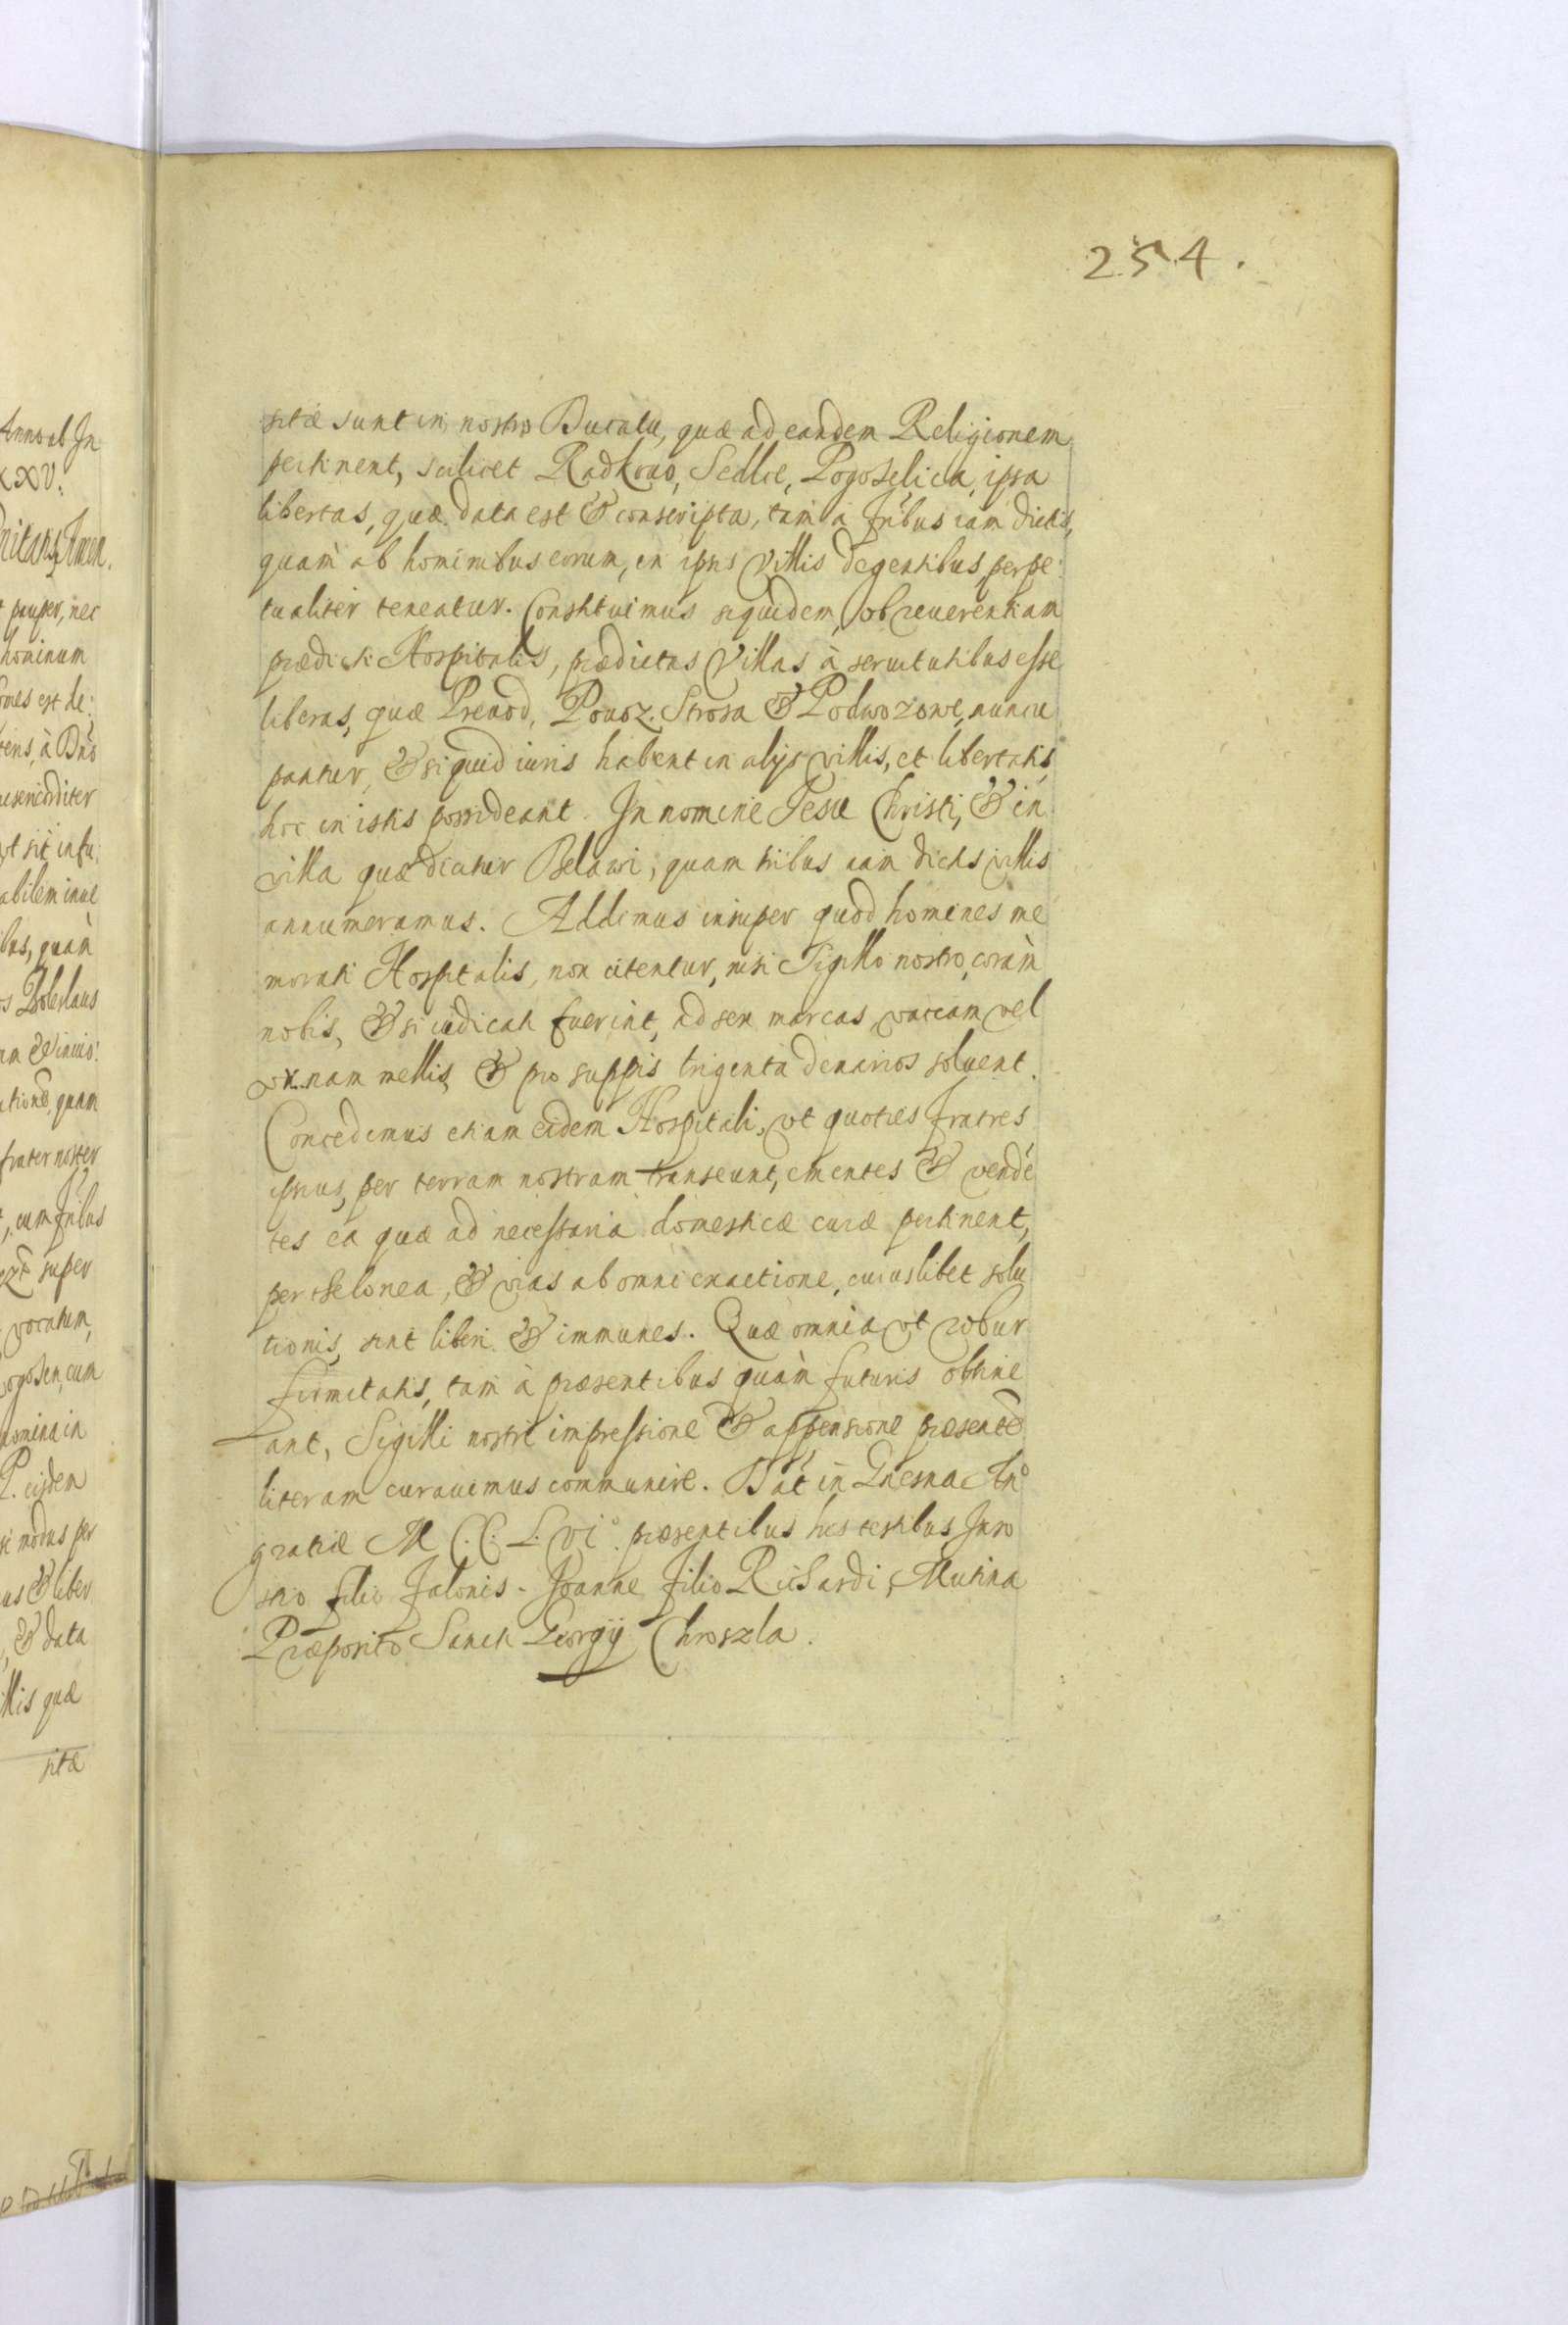 254.
sitæ sunt in nostro Ducatu, quæ ad eandem Religionem
pertinent, scilicet Radkouo, Sedlce, Pogoselica, ipsa
libertas, quæ data est & conscripta, tam à fribus iam dictis,
quam ab hominibus eorum, in ipsis villis degentibus perpe:
tualiter teneatur. Constituimus siquidem, ob reuerentiam
prædicti Hospitalis, prædictas Villas à seruitutibus esse
liberas, quæ Preuod, Pouoz. Strosa & Podwozowe nuncu
pantur, & si quid iuris habent in alijs villis, et libertatis,
hoc in istis possideant. In nomine Jesu Christi, & in
villa quæ dicitur Belawi, quam tribus iam dictis villis
annumeramus. Addimus insuper quod homines me
morati Hospitalis, non citentur, nisi Sigillo nostro, coràm
nobis, & si iudicati fuerint, ad sex marcas, vaccam vel
vrnam mellis, & pro suppis triginta denarios soluent.
Concedimus etiam eidem Hospitali, vt quoties fratres
ipsius, per terram nostram transeunt, ementes & vendē
tes ea quæ ad necessaria domesticæ curæ pertinent,
per thelonea, & vias ab omni exactione, cuiuslibet solu
tionis, sint liberi & immunes. Quæ omnia vt robur
firmitatis, tam à præsentibus quàm futuris obtine
ant, Sigilli nostri impressione & appensione præsentē
literam curauimus communire. Dat in Gnesna Anº
gratiæ M C.C. L. viº. præsentibus his testibus
filio Jalonis. Joanne filio Richardi, Mutina
Præposito Sancti Georgij Chroszla.
Anno ab In
XXV.
Amen.
pauper, nec
hominum
tens, à Dño
misericorditer
abilem inue
bus, quàm
Boleslaus
quam
frater noster
cum fribus
super
vocatum,
cum
nomina in
P. eisdem
modus per
& liber
& data
illis quæ
sitæ